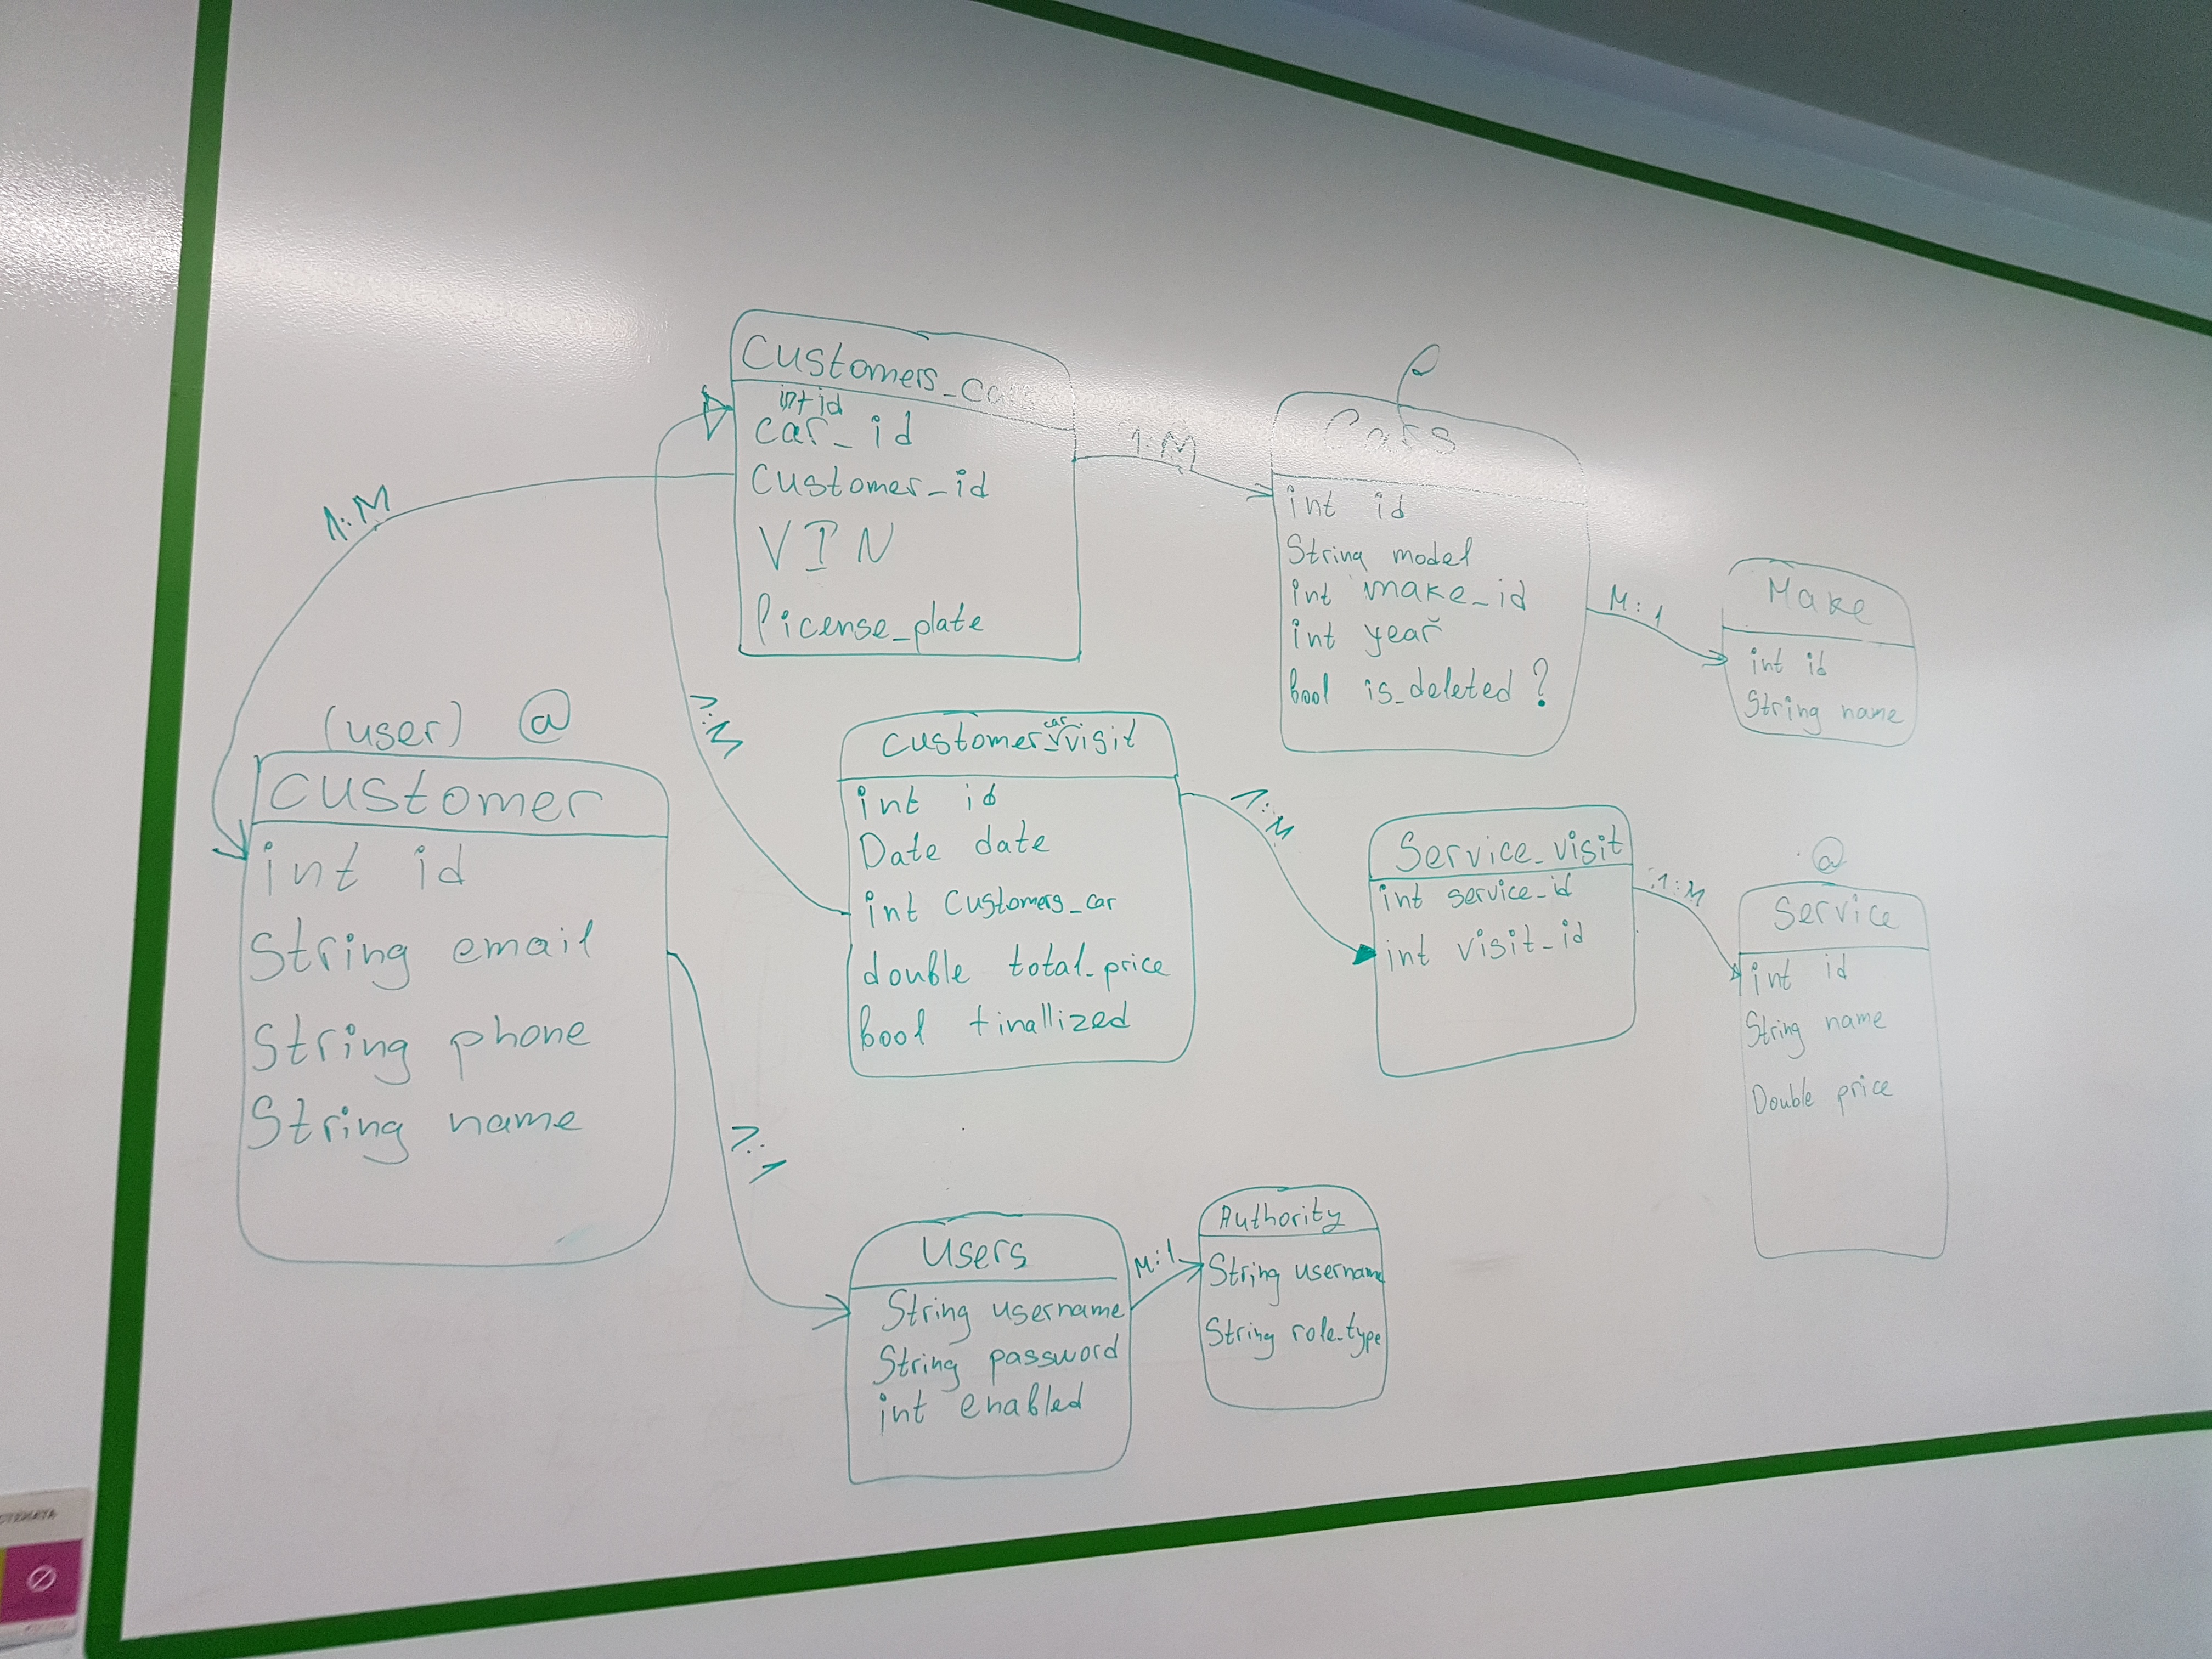 Customers_car
int id
car_id
Customer_id
VIN
license_plate
1:M
1:M
Cars
int id
String model
int make_id
int year
bool is_deleted ?
M:1
Make
int id
String name
(user) @
customer
int id
String email
String phone
String name
1:M
customer_visit
car
int id
Date date
int Customers_car
double total_price
bool finallized
1:M
Service_visit
int service_id
int visit_id
1:M
@
Service
int id
String name
Double price
1:1
Users
String username
String password
int enabled
M:1
Authority
String username
String role_type